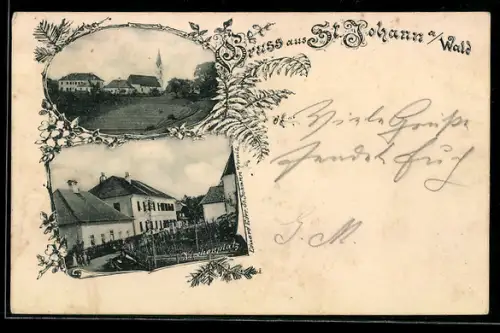 Gruss aus St. Johann a/Wald
Viele Grüße
sendet Euch
J. M.
Kirchenplatz